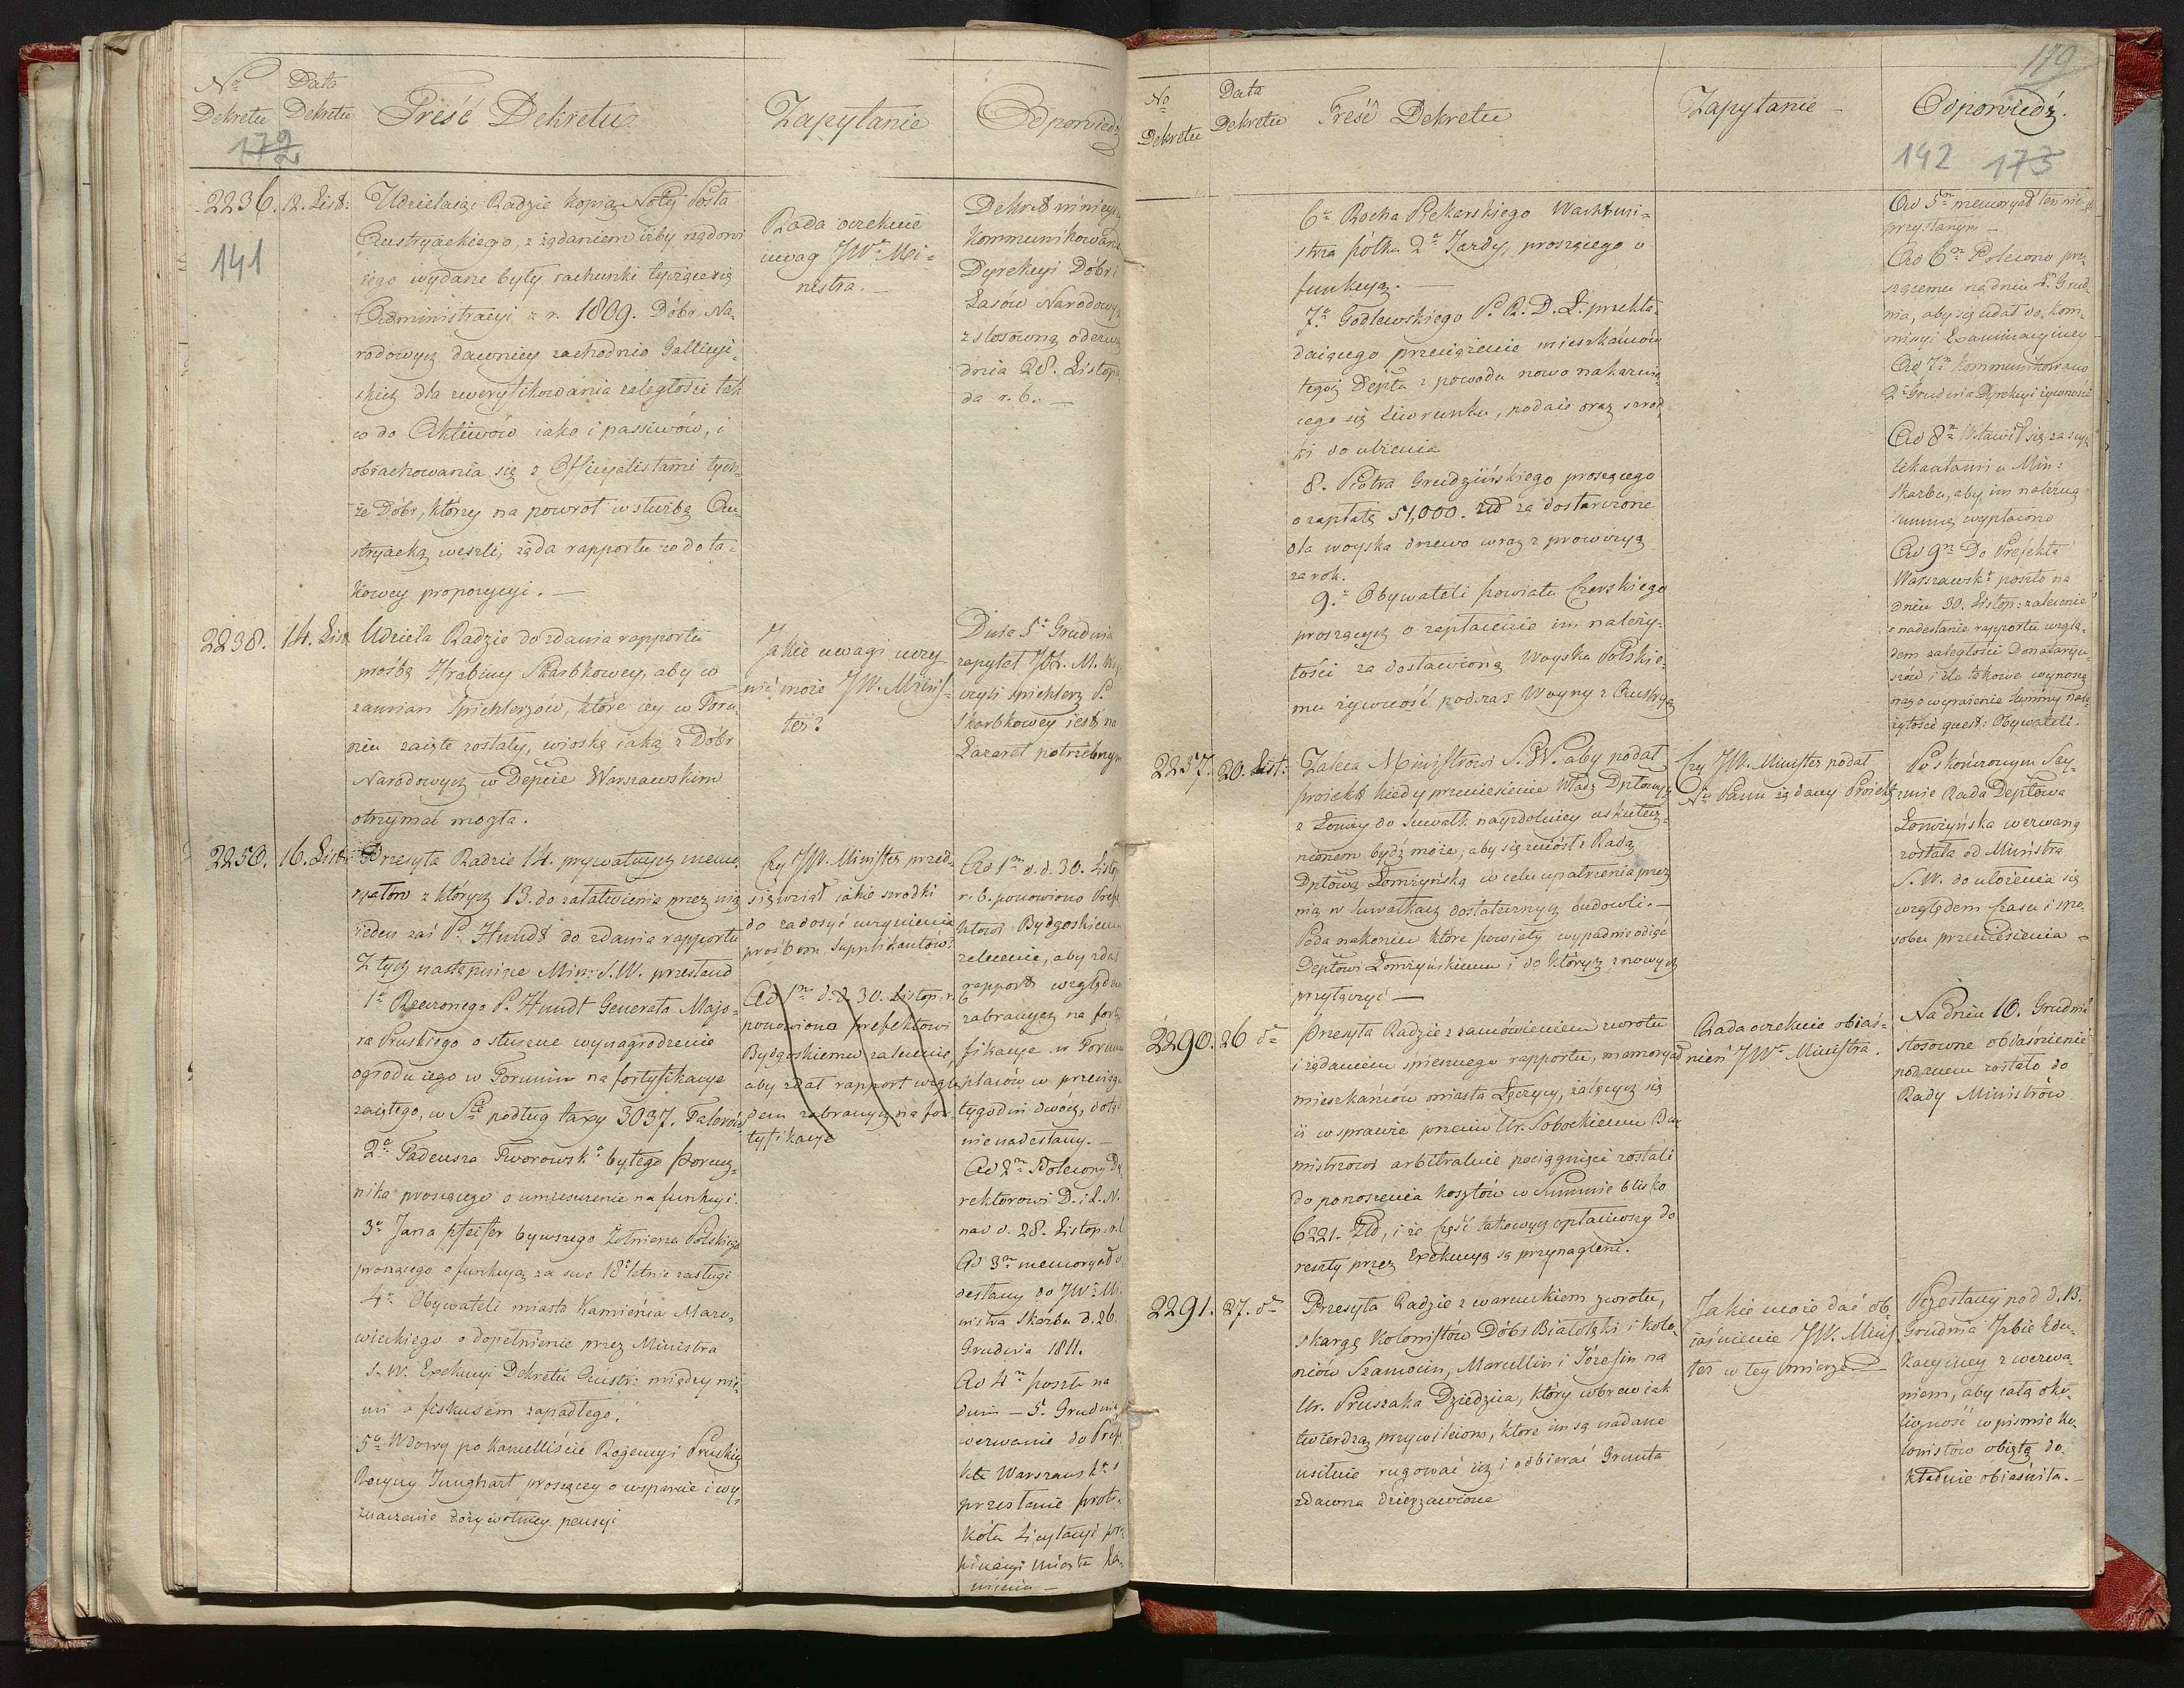 No Dekretu
Data Dekretu
Treść Dekretu
Zapytanie
Odpowiedź
172
141
2236. 12. List.
Udzielaiąc Radzie kopią Noty Posła
Austryackiego, z żądaniem iżby rządowi
iego wydane były rachunki tyczące się
Administracyi z r. 1809. Dóbr Na-
rodowych dawniey zachodnio Gallicyi-
skiey dla zweryfikowania zaległości tak
co do Aktiwów iako i passiwów, i
obrachowania się z Officyalistami tych-
że Dóbr, którzy na powrot w służbę Au-
stryacką weszli, żąda rapportu co do ta-
kowey propozycyi. —
Rada oczekuie
uwag JWo Mi-
nistra. —
Dekret ninieyszy
kommunikowany
Dyrekcyi Dóbr i
Lasów Narodowych
z stosowną odezwą
dnia 28. Listopa
da r. b. —
2238. 14. List.
Udziela Radzie do zdania rapportu
prośbę Hrabiny Skarbkowey, aby w
zamian Spichlerzów, które iey w Toru
niu zaięte zostały, wioskę iaką z Dóbr
Narodowych w Depcie Warszawskim
otrzymać mogła.
Jakie uwagi uczy
nić może JW. Minis-
ter?
Dnia 5o Grudnia
zapytał JW. M. W.
czyli spichlerz P.
Skarbkowey iest na
Lazaret potrzebnym
2250. 16. List.
Przesyła Radzie 14. prywatnych memo
ryałów z których 13. do załatwienia przez nią
ieden zaś P. Hundt do zdania rapportu
Z tych następuiące Min: S. W. przesłano
1o Rzeczonego P. Hundt Generała Majo-
ra Pruskiego o słuszne wynagrodzenie
ogrodu iego w Toruniu na fortyfikacye
zaiętego, w podług taxy 3037. Talarów
2o Tadeusza Tworowsko byłego porucz-
nika proszącego o umieszczenie na funkcyi.
3o Jana Pfeifer bywszego Żołnierza Polskiego
proszącego o funkcyą za swe 18o letnie zasługi
4o Obywateli miasta Kamieńca Mazo-
wieckiego o dopełnienie przez Ministra
S. W. Exekucyi Dekretu Austr: między nie-
mi a fiskusem zapadłego.
5o Wdowy po Kancelliście Rejencyi Pruskiey
Junghart proszącey o wsparcie i wy-
znaczenie dożywotney pensyi
Czy JW. Minister przed-
sięwziął iakie srodki
do zadosyć uczynienia
prośbom Supplikantów?
Ad 1m d. d. 30. Listop. r.
ponowiono prefektowi
Bydgoskiemu zalecenie,
aby zdał rapport wzglę
dem zabranych na for-
tyfikacye
Ad 1m d. d. 30. Listop
r. b. ponowiono Prefe
ktowi Bydgoskiemu
zelecenie, aby zdał
rapport względem
zabranych na forty
fikacye w Toruniu
placów w przeciągu
tygodni dwóch, dotąd
nienadesłany. —
Ad 2m Polecony Dy
rektorowi D. i L. N.
nad d. 28. Listop. r. b.
Ad 3m memoryał o-
desłany do JWo Mi
nistra Skarbu d. 26.
Grudnia 1811.
Ad 4m poszło na
dniu — 5. Grudnia
wezwanie do Prefe
kta Warszawsko o
przesłanie proto-
kółu Licytacyi pro
pinacyi Miasta Ka-
mieńca —
No Dekretu
Data Dekretu
Treść Dekretu
Zapytanie
Odpowiedź.
179
142 173
6o Rocha Piekarskiego Wachtmi-
strza półku 2o Jazdy, proszącego o
funkcyą. —
7o Godlewskiego P. R. D. Ł. przekła-
daiącego przeciążenie mieszkańców
tegoż Depttu z powodu nowo nakazuią
cego się liwerunku, podaie oraz srod-
ki do ulżenia
8. Piotra Grudzińskiego proszącego
o zapłatę 51,000. złd za dostarczone
dla woyska drzewo wraz z prowizyą
za rok.
9o Obywateli powiatu Czerskiego
proszących o zapłacenie im należy-
tości za dostawioną Woysku Polskie-
mu żywność podczas Woyny z Austryą
Ad 5m memoryał ten nie
przysłanym —
Ad 6m Polecono pro
szącemu na dniu 5. Grud-
nia, aby się udał do Kom-
missyi Examinacyiney
Ad 7m Kommunikowano
2o Grudnia Dyrekcyi żywności
Ad 8m Wstawił się za sup-
likantami u Min:
Skarbu, aby im należną
summę wypłacono
Ad 9m Do Prefekta
Warszawsko poszło na
dniu 30. Listop: zalecenie
o nadesłanie rapportu wzglę-
dem zaległości Donataryu-
szów i ile takowe wynoszą
na zaspokojenie Summy nale
żytości quest: Obywateli.
2257. 20. List.
Zaleca Ministrowi S. W. aby podał
proiekt kiedy przeniesienie Władz Dptowych
z Łomży do Suwałk naydogodniey uskutecz-
nionem bydź może; aby się zniósł z Radą
Dptową Łomżyńską w celu upatrzenia przez
nią w Suwałkach dostatecznych budowli. —
Poda nakoniec które powiaty wypadnie odiąć
Deptowi Łomżyńskiemu i do których z nowych
przyłączyć —
Czy JW. Minister podał
No Panu żądany Proiekt
Po skończonym Sey-
mie Rada Deptowa
Łomżyńska wezwaną
została od Ministra
S. W. do ułożenia się
względem czasu i spo-
sobu przeniesienia —
2290. 26 do
Przesyła Radzie z zamówieniem zwrotu
i żądaniem śpiesznego rapportu, memoryał
mieszkańców miasta Łęczycy, żalących się
iż w sprawie przeciw Ur. Sobockiemu Bur
mistrzowi arbitralnie pociągnięci zostali
do ponoszenia kosztów w Summie blisko
6221. Złd, i że część takowych opłaciwszy do
reszty przez Exekucyą są przynagleni.
Rada oczekuie obiaś-
nień JWo Ministra.
Na dniu 10. Grudnia
stosowne obiaśnienie
podanem zostało do
Rady Ministrów
2291. 27. do
Przesyła Radzie z warunkiem zwrotu,
skargę Kolonistów Dóbr Białołęki i kolo-
niów Szamocin, Marcellin i Józefin na
Ur. Pruszaka Dziedzica, który wbrew iak
twierdzą przywileiom, które im są nadane
usiłuie rugować ich i odbierać Grunta
zdawna dzierzawione
Jakie może dać ob
iaśnienie JW. Minis-
ter w tey mierze?
Przesłany pod d. 13.
Grudnia Izbie Edu-
kacyiney z wezwa-
niem, aby całą oko-
liczność w pismie Ko-
lonistów obiętą do-
kładnie obiaśniła. —